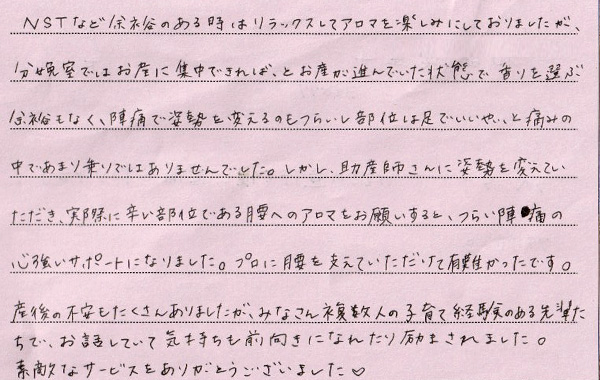 NSTなど余裕のある時はリラックスしてアロマを楽しみにしておりましたが、
分娩室ではお産に集中できれば、とお産が進んでいた状態で香りを選ぶ
余裕もなく、陣痛で姿勢を変えるのもつらいし部位は足でいいや、と痛みの
中であまり乗りではありませんでした。しかし、助産師さんに姿勢を変えてい
ただき、実際に辛い部位である腰へのアロマをお願いすると、つらい陣痛の
心強いサポートになりました。プロに腰を支えていただけて有難かったです。
産後の不安もたくさんありましたが、みなさん複数人の子育て経験のある先輩た
ちで、お話していて気持ちも前向きになれたり励まされました。
素敵なサービスをありがとうございました♡